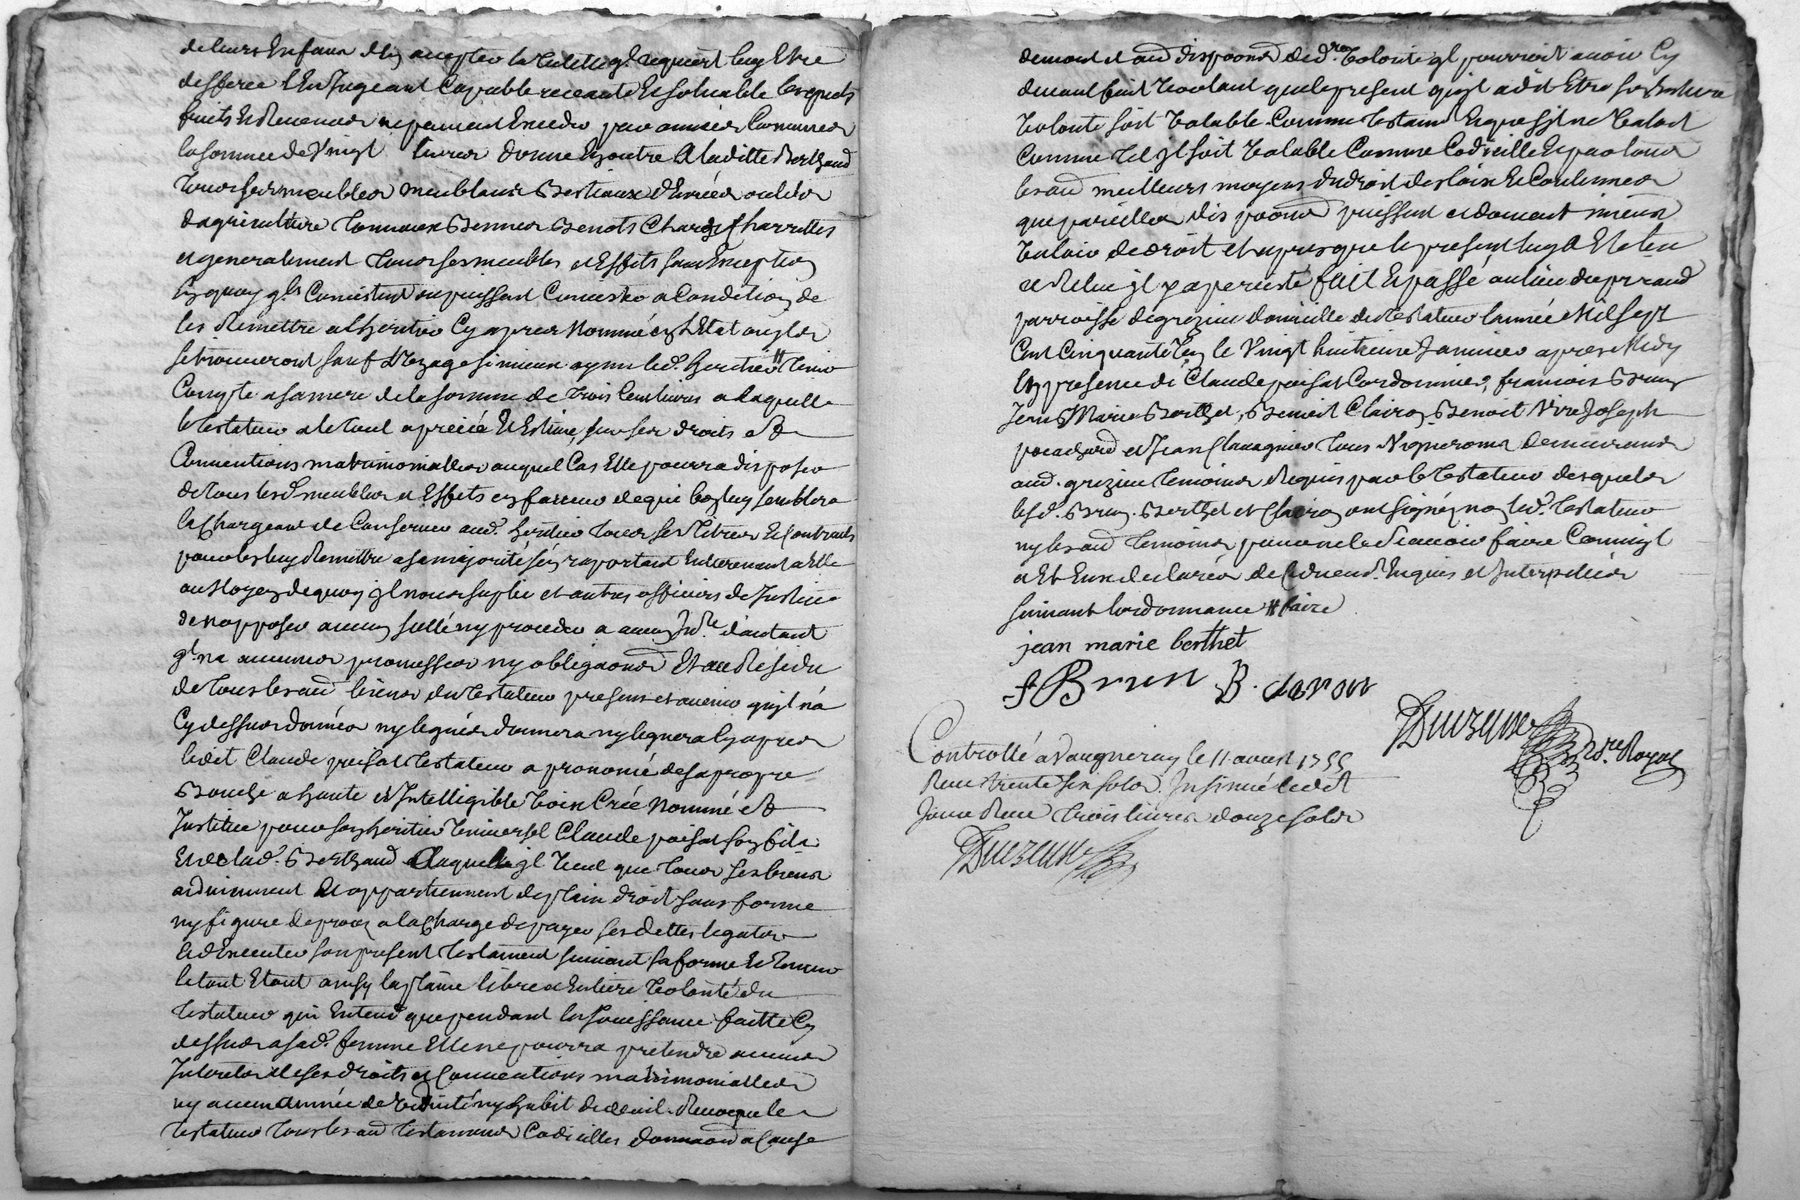 de leurs Enfans d'En accepter la tutelle ql. requiert luy Etre
defferée l'En Jugeant Capable recéante Et solvable lesquels
fruits Et Revenus ne peuvent Exceder par année Commune
la somme de Vingt livres donne Enoutre A laditte Bertraud
tous ses meubles meublants Bestiaux d'Enrées outils
dagriculture tonneaux Bennes Benots Chars Charrettes
et generalement tous ses meubles et Effets sans Exception
En quoy qls Consistent ou puissent Consister a Condition de
les Remettre a lheritier Cy apres Nommé En l'Etat ou qls
se trouveront sauf l'Uzage si mieux ayme led. heritier # tenir
Compte a sa mere de la somme de trois Cent livres a laquelle
le testateur a le tout aprécié Et Estimé, sur ses droits Et
Conventions matrimonialles auquel Cas Elle pourra disposer
de tous lesd. meubles et Effets En faveur de qui bon luy semblera
la Chargeant de Conserver aud. heritier tous ses titres Et Contracts
pour les luy Remettre a sa majorité s'En raportant Entierement a Elle
au Moyen de quoy Jl nous suplie et autres officiers de Justice
de napposer aucun scellé ny proceder a aucun Jnre. dautant
ql. na aucunes promesses ny obligaons Et au Residu
de tous lesd. biens du testateur presens et avenir qu'jl n'a
Cy dessus donnés ny legués donnera ny leguera Cy apres
ledit Claude poisat testateur a prononcé de sa propre
Bouche a haute Et Jntelligible voix Créé Nommé et
Jnstitué pour son heritier Universel Claude poisat son fils
Et de lad. Bertraud Auquel jl veut que tous ses biens
adviennent Et appartiennent de plain droit sans forme
ny figure de proces a la Charge de payer ses dettes legats
Et d'Executer son present testament suivant sa forme Et teneur
le tout Etant ainsy la plaine libre et Entiere volonté du
testateur qui Entend que pendant la Jouissance faitte Cy
dessus a sad. femme Elle ne pourra pretendre aucuns
Jnterets de ses droits et Conventions matrimonialles
ny aucun année de viduité ny habit de deuil. Revoque le
testateur tous les aud testamens Codicilles donnaons a Cause
de mort et aud dispoons de dre. volonté ql pourroit avoir Cy
devant fait voulant que le present qu'jl a dit Etre sa derniere
volonté soit valable Comme testamt Et que s'jl ne valoit
Comme tel Jl soit valable Comme Codicille Et par tous
les aud meilleurs moyens du droit des loix Et Coutumes
que pareilles dispoons puissent et doivent mieux
valoir de droit et apres que le present luy A Eté leu
et Releu jl y a persisté fait Et passé au lieu du
parroisse de grezieu domicille du testateur l'année Mil sept
Cent Cinquante Cinq le Vingt huitieme Janvier apres Midy
En presence de Claude poisat Cordonnier, francois Brun
Jean Marie Berthet, Benoit Clairon Benoit Vire Joseph
et Jean Chavagnieu tous Vignerons demeurants
aud. grezieu temoins Requis par le testateur desquels
lesd. Brun Berthet et Clairon ont signé, non led. testateur
ny les aud temoins pour ne le sçavoir faire Comm'jl
a Et Eux declarés de Ce duement Enquis et Jnterpellés
suivant lordonnance # faire
jean marie berthet
f Brun B. claron
Duezeune Nre. Royal
Controllé a Vaugneray le 11 avril 1755
Reçu trente six sols. Jnsinué ledit
Jour Reçu trois livres douze sols
Duezeune